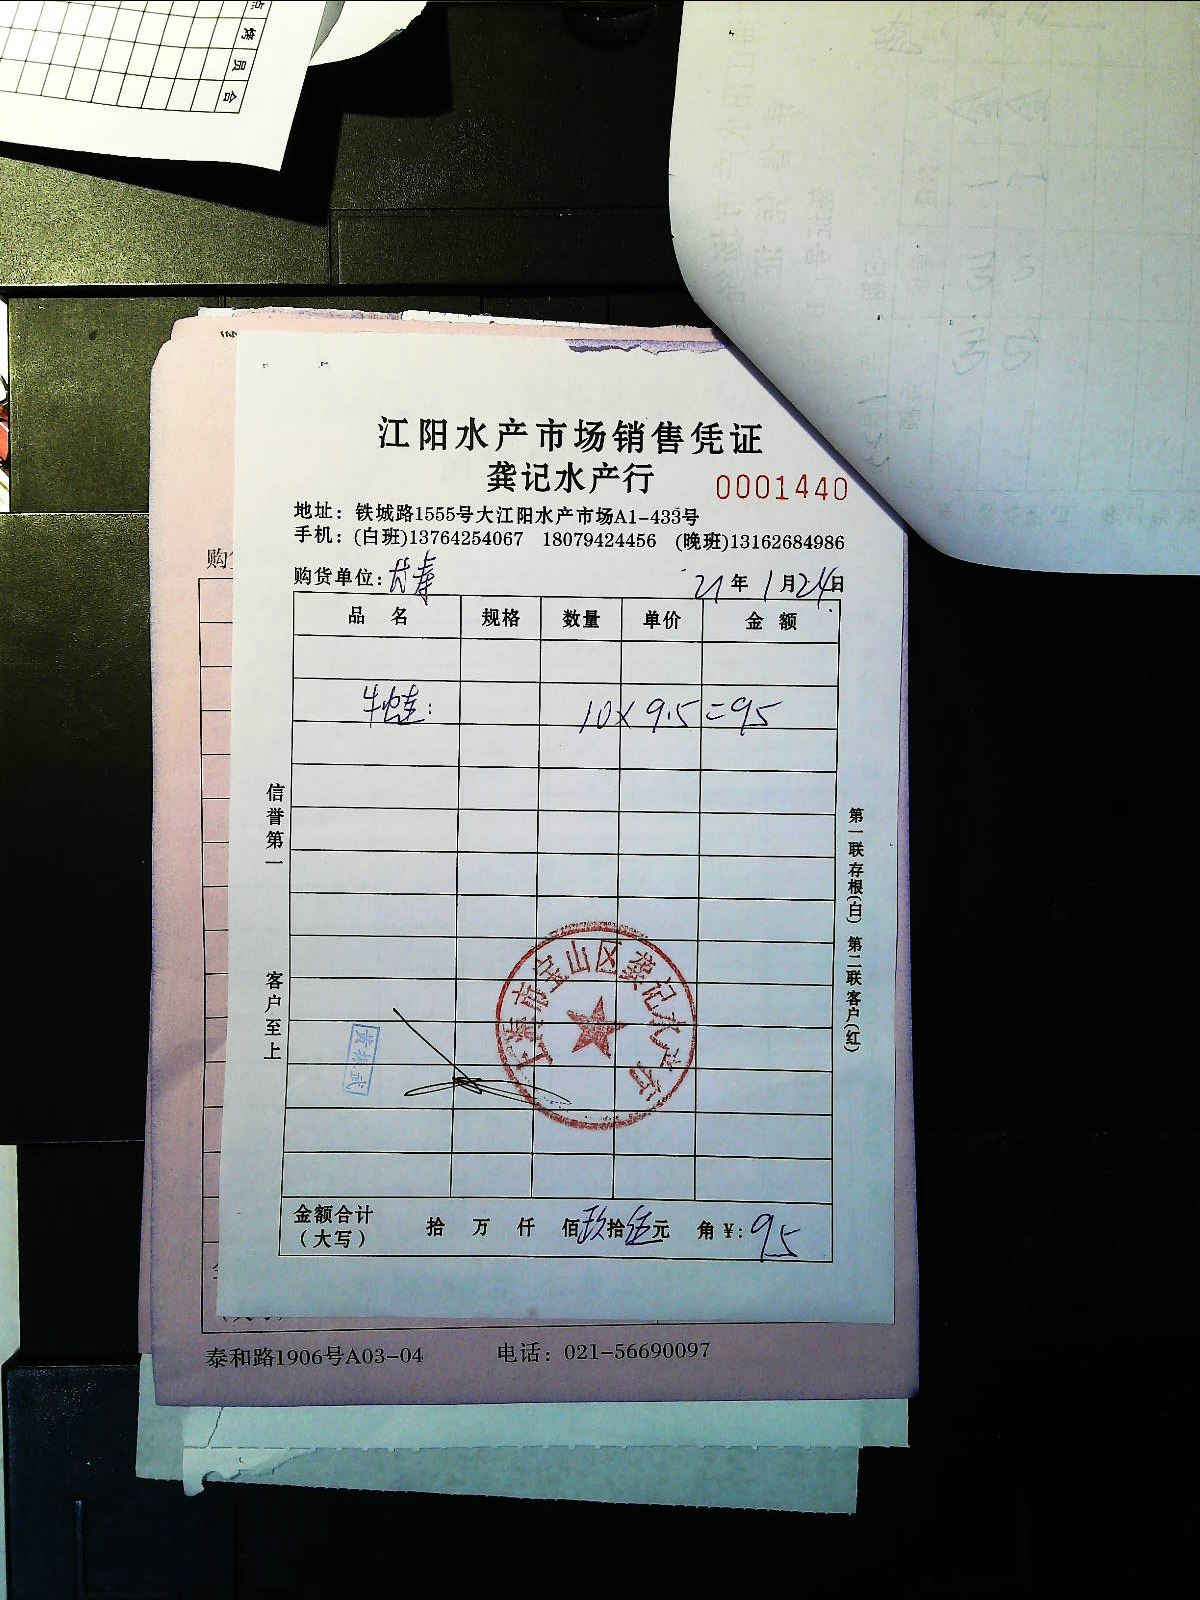 点
烤
员
合
江阳水产市场销售凭证
龚记水产行
0001440
地址：铁城路1555号大江阳水产市场A1-433号
手机：(白班)13764254067 18079424456 (晚班)13162684986
购货单位：
21年1月24日
品 名 规格 数量 单价 金 额
牛蛙： 10×9.5=95
信誉第一
客户至上
第一联存根(白) 第二联客户(红)
上海市宝山区龚记水产行
金额合计（大写） 拾 万 仟 佰玖拾伍元 角 ¥:95
购
泰和路1906号A03-04 电话：021-56690097